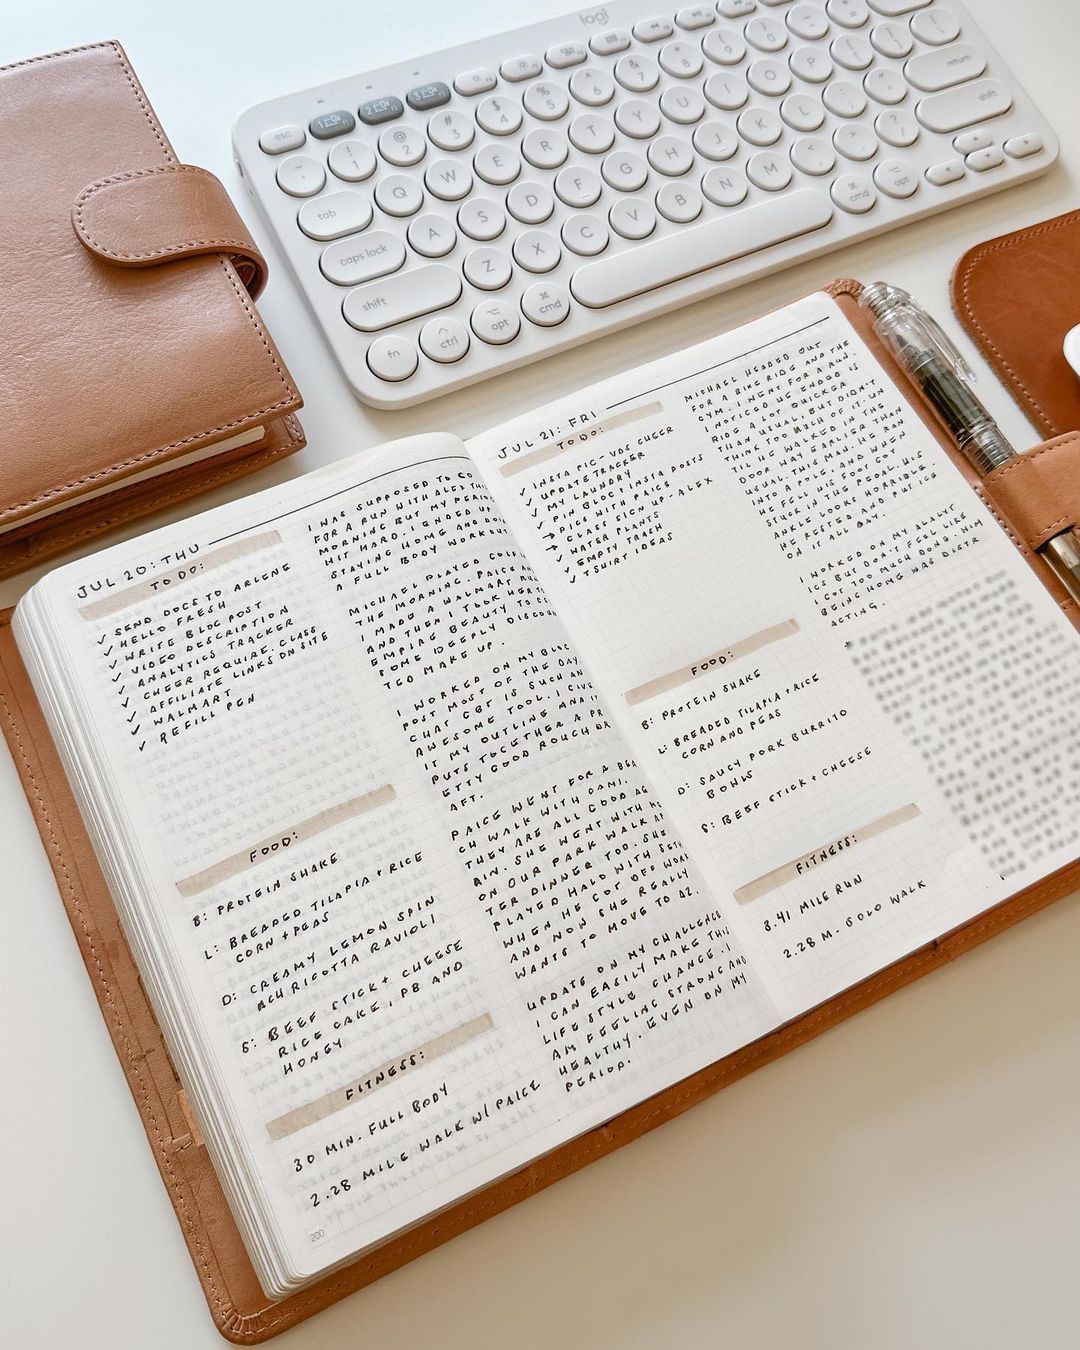 logi
esc
1
2
3
~
!
1
@
2
#
3
$
4
%
5
^
6
&
7
*
8
(
9
)
0
tab
Q
W
E
R
T
Y
U
I
O
P
return
caps lock
A
S
D
F
G
H
J
K
L
shift
Z
X
C
V
B
N
M
shift
fn
ctrl
opt
cmd
cmd
opt
JUL 20: THU
TO DO:
✓ SEND DOCS TO ARLENE
✓ HELLO FRESH
✓ WRITE BLOG POST
✓ VIDEO DESCRIPTION
✓ ANALYTICS TRACKER
✓ CHEER REQUIRE. CLASS
✓ AFFILIATE LINKS ON SITE
✓ WALMART
✓ REFILL PEN
FOOD:
B: PROTEIN SHAKE
L: BREADED TILAPIA + RICE
CORN + PEAS
D: CREAMY LEMON SPIN
ACH RICOTTA RAVIOLI
S: BEEF STICK + CHEESE
RICE CAKE, PB AND
HONEY
FITNESS:
30 MIN. FULL BODY
2.28 MILE WALK W/ PAIGE
200
I WAS SUPPOSED TO GO
FOR A RUN WITH ALEX THIS
MORNING BUT MY PERIOD
HIT HARD. I ENDED UP
STAYING HOME AND DOING
A FULL BODY WORKOUT
MICHAEL PLAYED GOLF IN
THE MORNING. PAIGE AND
I MADE A WALMART RUN
AND THEN I TOOK HER TO
EMPIRE BEAUTY TO GET
SOME DEEPLY DISCOUN
TED MAKE UP.
I WORKED ON MY BLOG
POST MOST OF THE DAY.
CHAT GBT IS SUCH AN
AWESOME TOOL. I GIVE
IT MY OUTLINE AND IT
PUTS TOGETHER A PR
ETTY GOOD ROUGH DR
AFT.
PAIGE WENT FOR A BEA
CH WALK WITH CAMI.
THEY ARE ALL GOOD AG
AIN. SHE WENT WITH ME
ON OUR PARK WALK AF
TER DINNER TOO. SHE
PLAYED HALO WITH SETH
WHEN HE GOT OFF WORK
AND NOW SHE REALLY
WANTS TO MOVE TO AZ.
UPDATE ON MY CHALLENGE
I CAN EASILY MAKE THIS
LIFE STYLE CHANGE. I
AM FEELING STRONG AND
HEALTHY. EVEN ON MY
PERIOD.
JUL 21: FRI
TO DO:
✓ INSTA PIC - VDS CHEER
✓ UPDATE TRACKER
✓ MY LAUNDRY
✓ PIN BLOG + INSTA POSTS
✓ PICS WITH PAIGE
→ CLASS SIGN UP - ALEX
→ WATER PLANTS
✓ EMPTY TRASH
✓ TSHIRT IDEAS
FOOD:
B: PROTEIN SHAKE
L: BREADED TILAPIA + RICE
CORN AND PEAS
D: SAUCY PORK BURRITO
BOWLS
S: BEEF STICK + CHEESE
FITNESS:
3.41 MILE RUN
2.28 M. SOLO WALK
MICHAEL HEADED OUT
FOR A BIKE RIDE AND THE
GYM. I WENT FOR A RUN.
I NOTICED HE ENDED IS
RIDE A LOT QUICKER
THAN USUAL, BUT DIDN'T
THINK TOO MUCH OF IT. UN
TIL HE WALKED IN THE
DOOR WAY EARLIER THAN
USUAL. THIS MAN. HE RAN
INTO A POLE, AND WHEN
HE FELL HIS FOOT GOT
STUCK IN THE PEDAL. HIS
ANKLE LOOKS HORRIBLE.
HE RESTED AND PUT ICE
ON IT ALL DAY.
I WORKED ON MY ANALYT
ICS BUT DON'T FEEL LIKE
I GOT TOO MUCH DONE. HIM
BEING HOME WAS DISTR
ACTING.